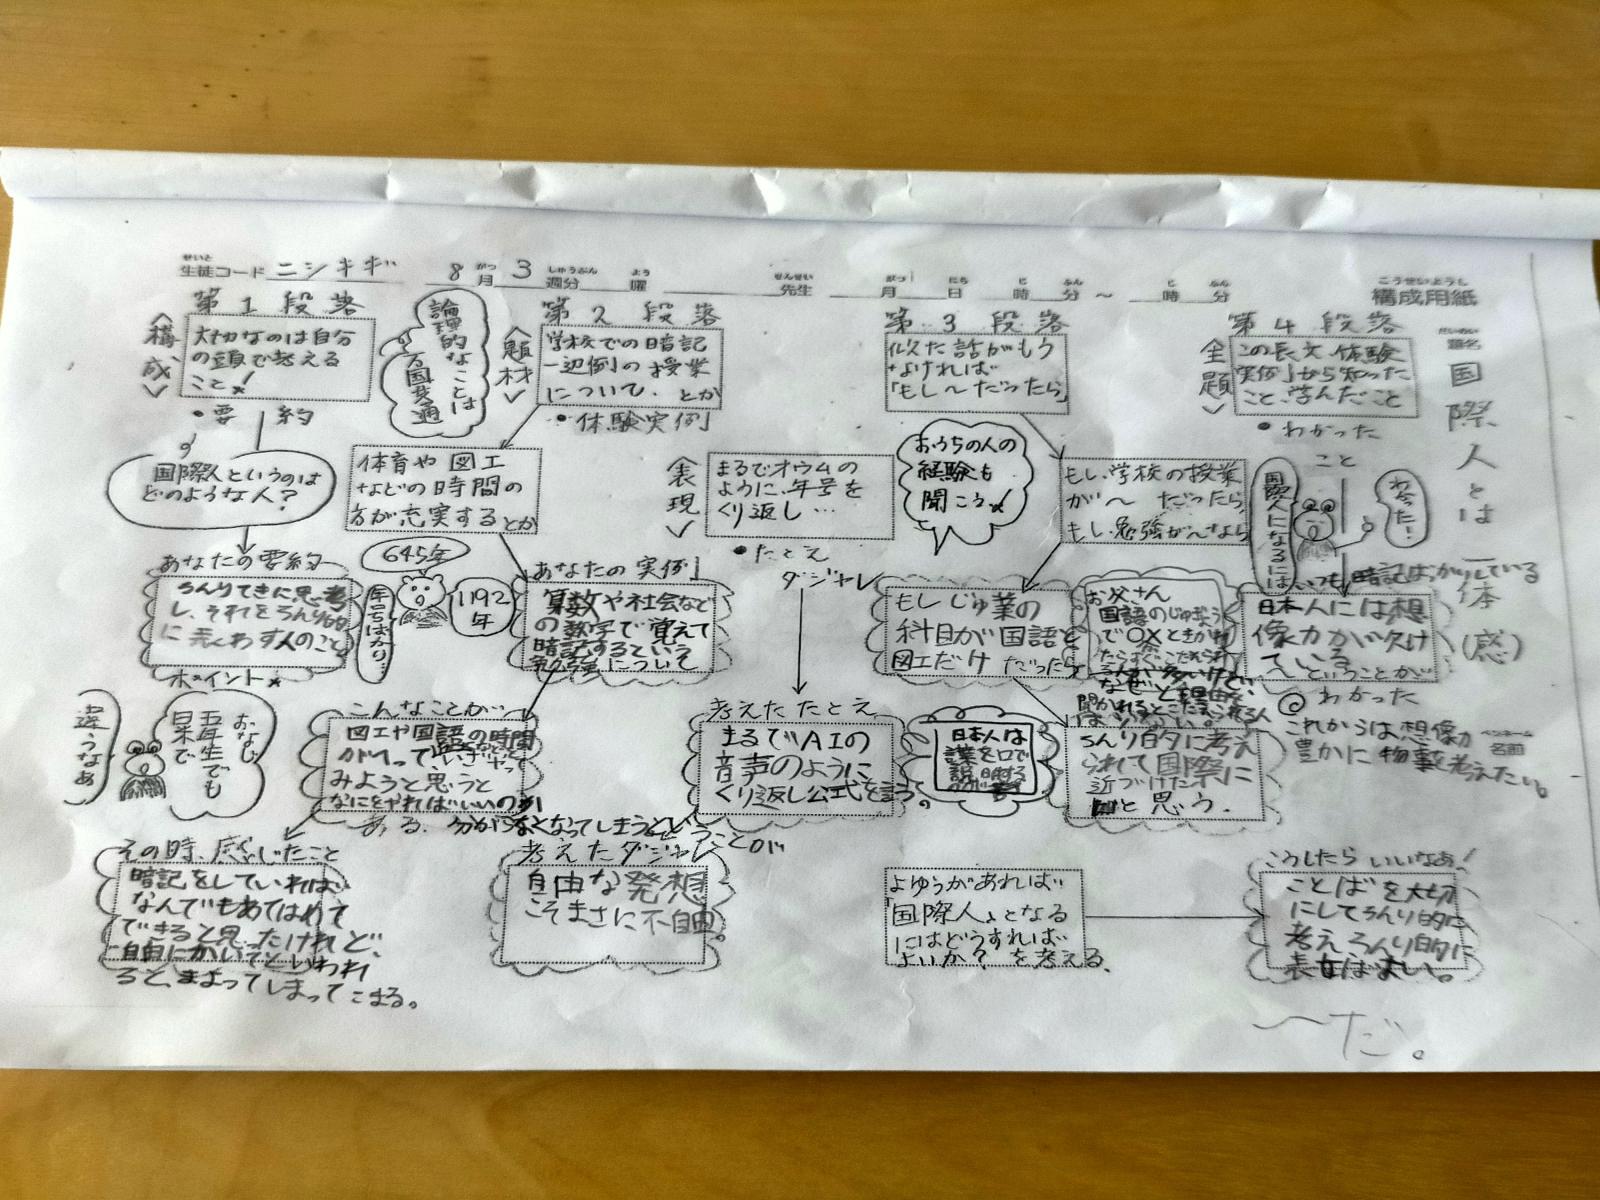 せいと
生徒コード ニシキギ 8月3週分 曜 先生 月 日 時 分 〜 時 分
こうせいようし
構成用紙
だいめい
題名
国際人とは一体(感)
ペンネーム
名前
第1段落
<構成>
大切なのは自分
の頭で考える
こと!
•要約
論理的なことは
万国共通
国際人というのは
どのような人?
あなたの要約
ろんりてきに思考
し、それをろんり的
に表わす人のこと
ポイント
違うなあ
おなじ
五年生でも
日米で
その時、感じたこと
暗記をしていれば
なんでもあてはめて
できると思ったけれど、
自由にかいてといわれ
ると、まよってしまってこまる。
第2段落
<題材>
学校での暗記
一辺倒の授業
について。とか
•体験実例
体育や図工
などの時間の
方が充実するとか
645年
1192年
年号ばかり…
あなたの実例
算数や社会など
の数字で覚えて
暗記するという
勉強について
こんなことが…
図工や国語の時間
みようと思うと
なにをやればいいのか
ある。分からなくなってしまうという
ことが
考えたダジャレ
自由な発想
こそまさに不自由。
第3段落
似た話がもう
なければ
「もし〜だったら」
<表現>
まるでオウムの
ように、年号を
くり返し…
•たとえ
ダジャレ
おうちの人の
経験も
聞こう
もし、学校の授業
が〜だったら
もし、勉強が〜なら
もしじゅ業の
科目が国語と
図工だけだったら
お父さん
国語のじゅ業
で〇×ときかれ
たらすぐこたえられる
なぜと理由を
聞かれるとこたえられる人
は少ない。
考えたたとえ
まるでAIの
音声のように
くり返し公式を言う。
日本人は
ろんり的に考え
られて国際に
近づけた
と思う。
第4段落
<主題>
この長文、体験
実例から知った
こと、学んだこと
•わかった
こと
国際人になるには
わかった!
いつも暗記ばっかりしている
日本人には想
像力が欠け
ている
ということが
わかった
これからは想像力
豊かに物事を考えたい。
よゆうがあれば
「国際人」となる
にはどうすれば
よいか?を考える。
こうしたらいいなあ!
ことばを大切
にしてろんり的に
考えろんり的に
表せばよい。
〜だ。